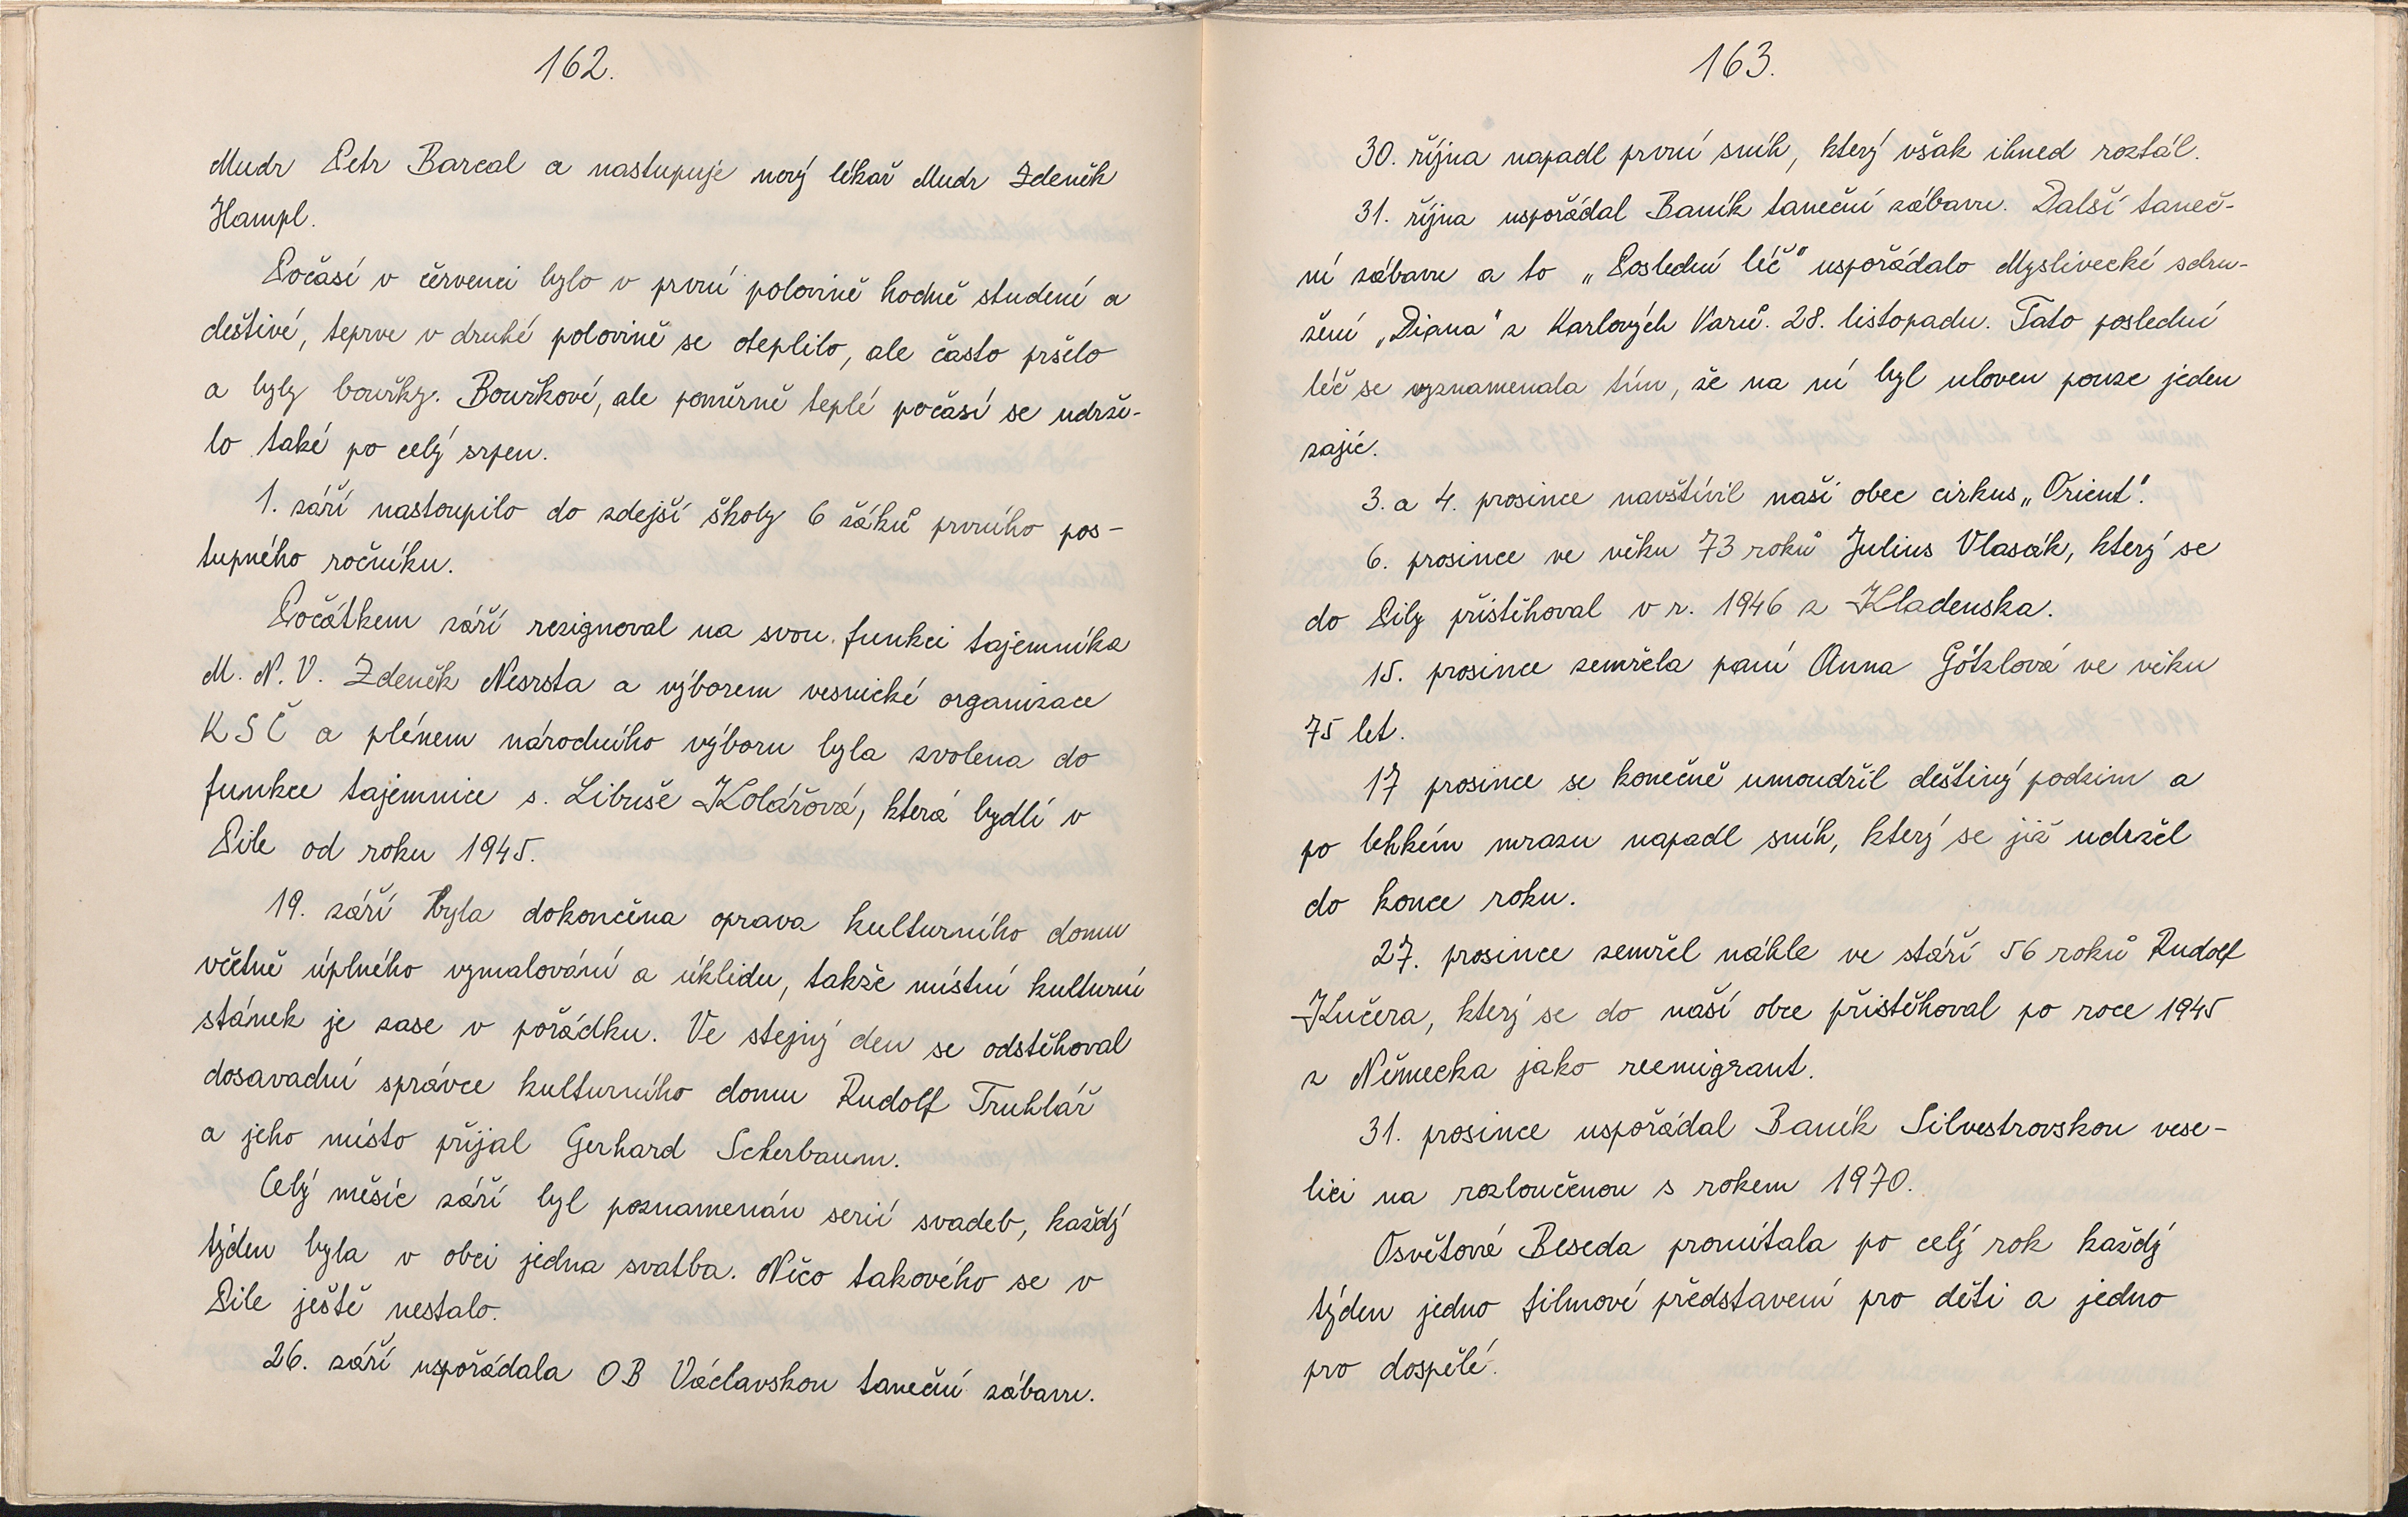 162.
Mudr Petr Barcal a nastupuje nový lékař Mudr Zdeněk
Hampl.
Počasí v červenci bylo v první polovině hodně studené a
deštivé, teprve v druhé polovině se oteplilo, ale často pršelo
a byly bouřky. Bouřkové, ale poměrně teplé počasí se udrže-
lo také po celý srpen.
1. září nastoupilo do zdejší školy 6 žáků prvního pos-
tupného ročníku.
Počátkem září resignoval na svou funkci tajemníka
M. N. V. Zdeněk Nesrsta a výborem vesnické organizace
KSČ a plénem národního výboru byla zvolena do
funkce tajemnice s. Libuše Kolářová, která bydlí v
Pile od roku 1945.
19. září byla dokončena oprava kulturního domu
včetně úplného vymalování a úklidu, takže místní kulturní
stánek je zase v pořádku. Ve stejný den se odstěhoval
dosavadní správce kulturního domu Rudolf Truhlář
a jeho místo přijal Gerhard Scherbaum.
Celý měsíc září byl poznamenán serií svadeb, každý
týden byla v obci jedna svatba. Něco takového se v
Pile ještě nestalo.
26. září uspořádala OB Václavskou taneční zábavu.
163.
30. října napadl první sníh, který však ihned roztál.
31. října uspořádal Baník taneční zábavu. Další taneč-
ní zábavu a to „Poslední léč" uspořádalo Myslivecké sdru-
žení „Diana" z Karlových Varů. 28. listopadu. Tato poslední
léč se vyznamenala tím, že na ní byl uloven pouze jeden
zajíc.
3. a 4. prosince navštívil naši obec cirkus „Orient".
6. prosince ve věku 73 roků Julius Vlasák, který se
do Pily přistěhoval v r. 1946 z Kladenska.
15. prosince zemřela paní Anna Götzlová ve věku
75 let.
17 prosince se konečně umoudřil deštivý podzim a
po lehkém mrazu napadl sníh, který se již udržel
do konce roku.
27. prosince zemřel náhle ve stáří 56 roků Rudolf
Kučera, který se do naší obce přistěhoval po roce 1945
z Německa jako reemigrant.
31. prosince uspořádal Baník Silvestrovskou vese-
lici na rozloučenou s rokem 1970.
Osvětová Beseda promítala po celý rok každý
týden jedno filmové představení pro děti a jedno
pro dospělé.